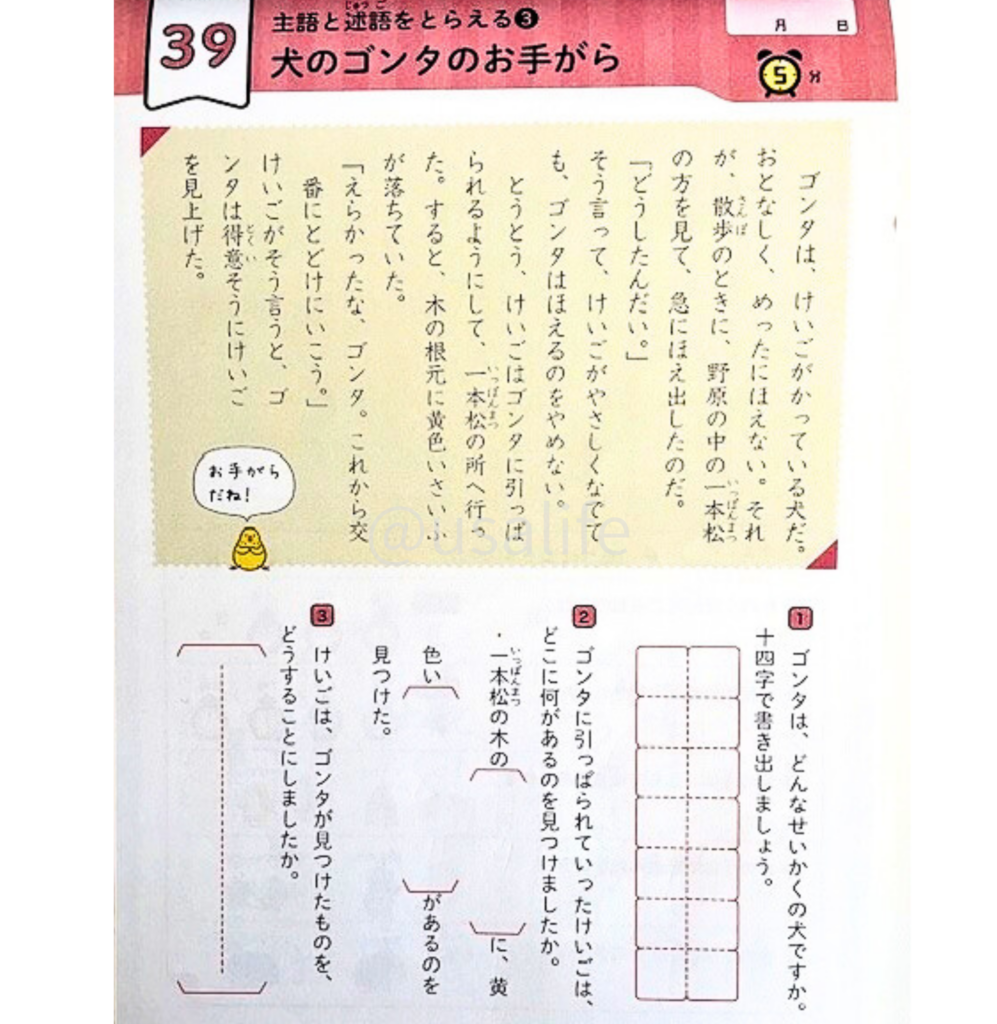 39
主語と述語をとらえる❸
じゅつご
犬のゴンタのお手がら
月 日
5
ゴンタは、けいごがかっている犬だ。
おとなしく、めったにほえない。それ
が、散歩のときに、野原の中の一本松
さんぽ
いっぽんまつ
の方を見て、急にほえ出したのだ。
「どうしたんだい。」
そう言って、けいごがやさしくなでて
も、ゴンタはほえるのをやめない。
とうとう、けいごはゴンタに引っぱ
られるようにして、一本松の所へ行っ
いっぽんまつ
た。すると、木の根元に黄色いさいふ
が落ちていた。
「えらかったな、ゴンタ。これから交
番にとどけにいこう。」
けいごがそう言うと、ゴ
ンタは得意そうにけいご
とくい
を見上げた。
お手がら
だね!
@usalife
1
ゴンタは、どんなせいかくの犬ですか。
十四字で書き出しましょう。
2
ゴンタに引っぱられていったけいごは、
どこに何があるのを見つけましたか。
・一本松の木の に、黄
いっぽんまつ
色い があるのを
見つけた。
3
けいごは、ゴンタが見つけたものを、
どうすることにしましたか。